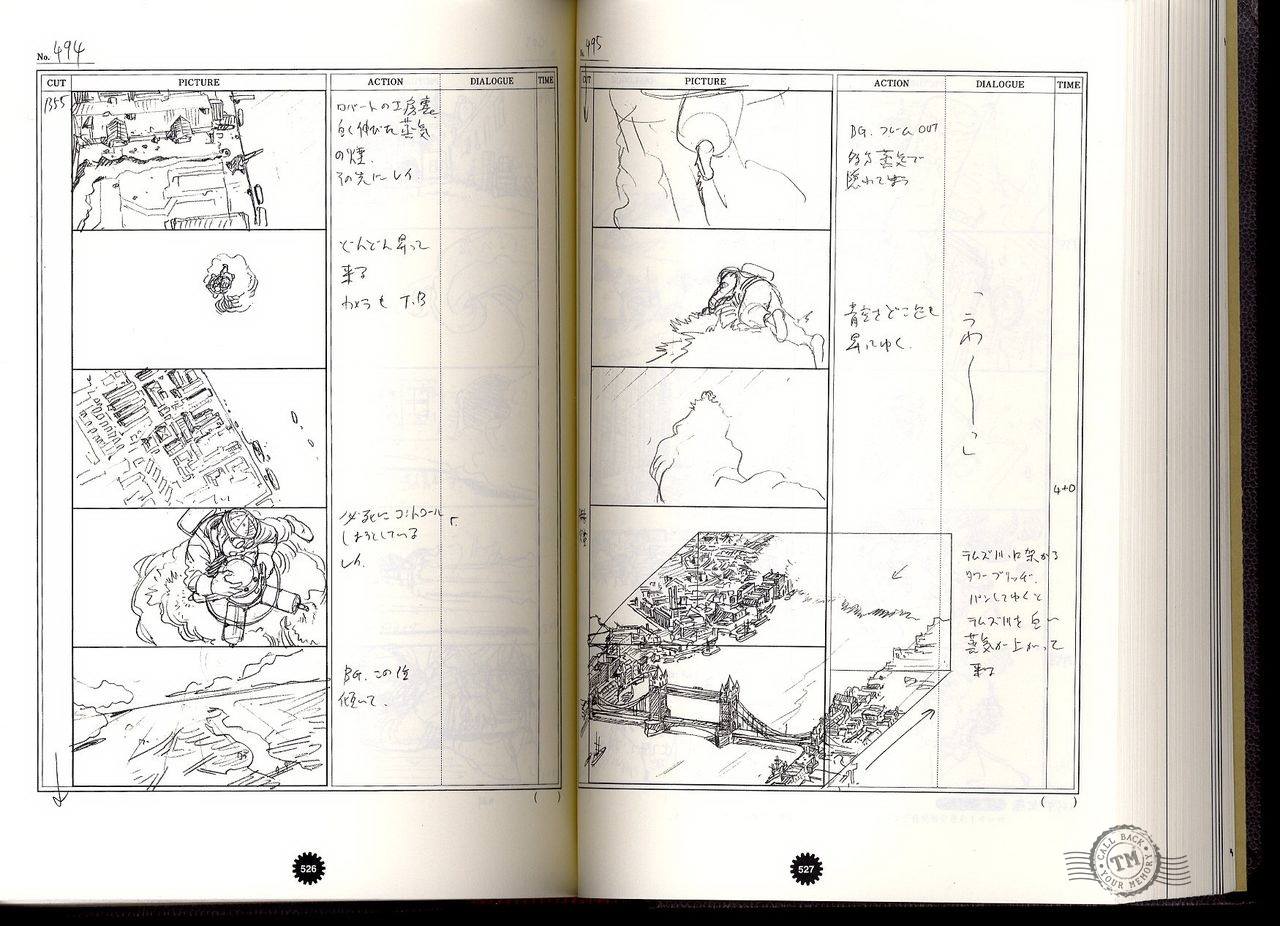 No. 494
CUT PICTURE ACTION DIALOGUE TIME
1355
ロバートの工房裏
白く伸びた蒸気
の煙.
その先にレイ
どんどん昇って
来る
カメラも T.B
必死にコントロール
しようとしている
レイ.
BG. この位
傾いて.
( )
526
No. 495
CUT PICTURE ACTION DIALOGUE TIME
BG. フレーム OUT
蒸気で
隠れてしまう
青空をどこまでも
昇ってゆく.
「うわ〜〜」
4+0
テムズ川に架かる
タワーブリッヂ.
パンしてゆくと
テムズ川を白い
蒸気が上がって
来る
( )
527
CALL BACK
TM
YOUR MEMORY